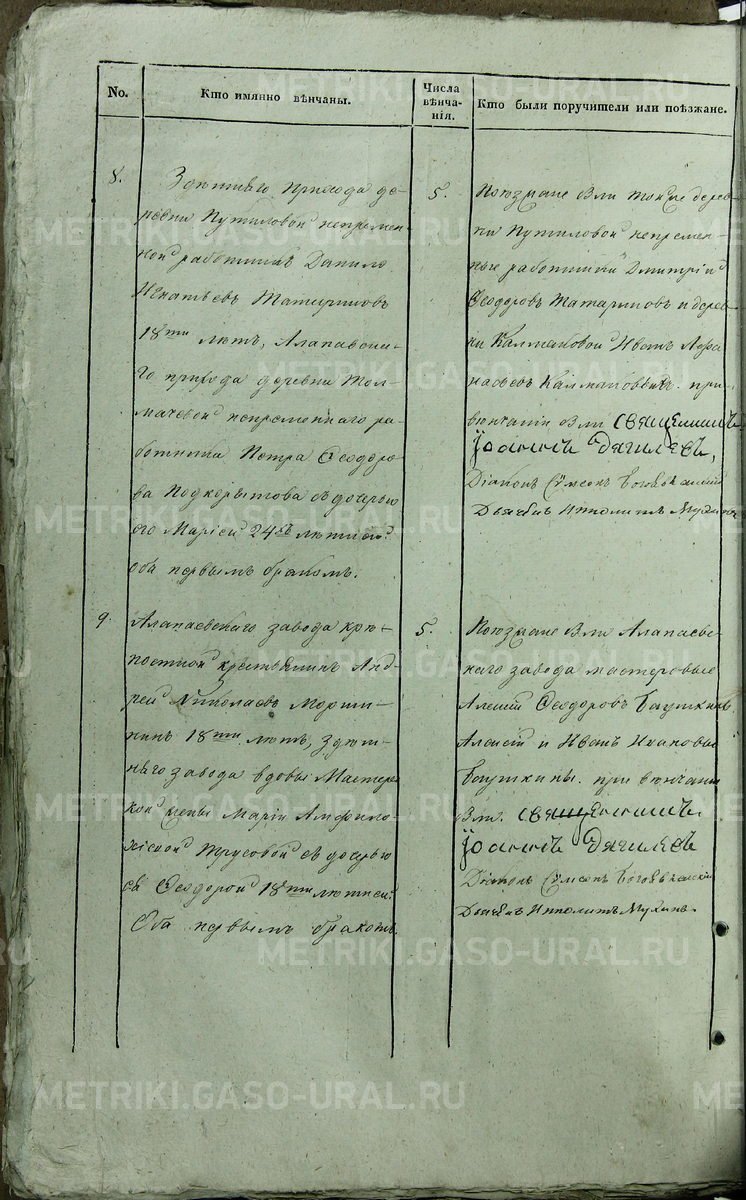 No.
Кто имянно вѣнчаны.
Числа
вѣнча-
нія.
Кто были поручители или поѣзжане.
8.
Здѣшняго прихода де-
ревни Путиловой непремен-
ной работникъ Данило
Игнатьевъ Татариновъ
18ти лѣтъ, Алапаевска-
го прихода деревни Тол-
мачевой непременнаго ра-
ботника Петра Ѳеодоро-
ва Подкорытова съ дочерью
его Маріей 24хъ лѣтней.
оба первымъ бракомъ.
5.
Поѣзжане были тойже дерев-
ни Путиловой непремен-
ные работники Дмитрій
Ѳеодоровъ Татариновъ и дерев-
ни Калмаковой Иванъ Афа-
насьевъ Калмаковыхъ. при
вѣнчаніи были священникъ
Іоаннъ Дягилевъ,
Діаконъ Сѵмеонъ
Дьячекъ Ипполитъ Мухинъ
9.
Алапаевскаго завода крѣ-
постной крестьянинъ Анд-
рей Николаевъ Морши-
нинъ 18ти лѣтъ, здѣш-
няго завода вдовы Мастерс-
кой жены Маріи Амфило-
хіевой Трусовой съ дочерью
ея Ѳеодорой 18ти лѣтней.
Оба первымъ бракомъ.
5.
Поѣзжане были Алапаевс-
каго завода мастеровые
Алексій Ѳеодоровъ Баушкинъ
Алексій и Иванъ Ивановы
Баушкины. при вѣнчаніи
были. священникъ
Іоаннъ Дягилевъ
Діаконъ Сѵмеонъ
Дьячекъ Ипполитъ Мухинъ.
METRIKI.GASO-URAL.RU